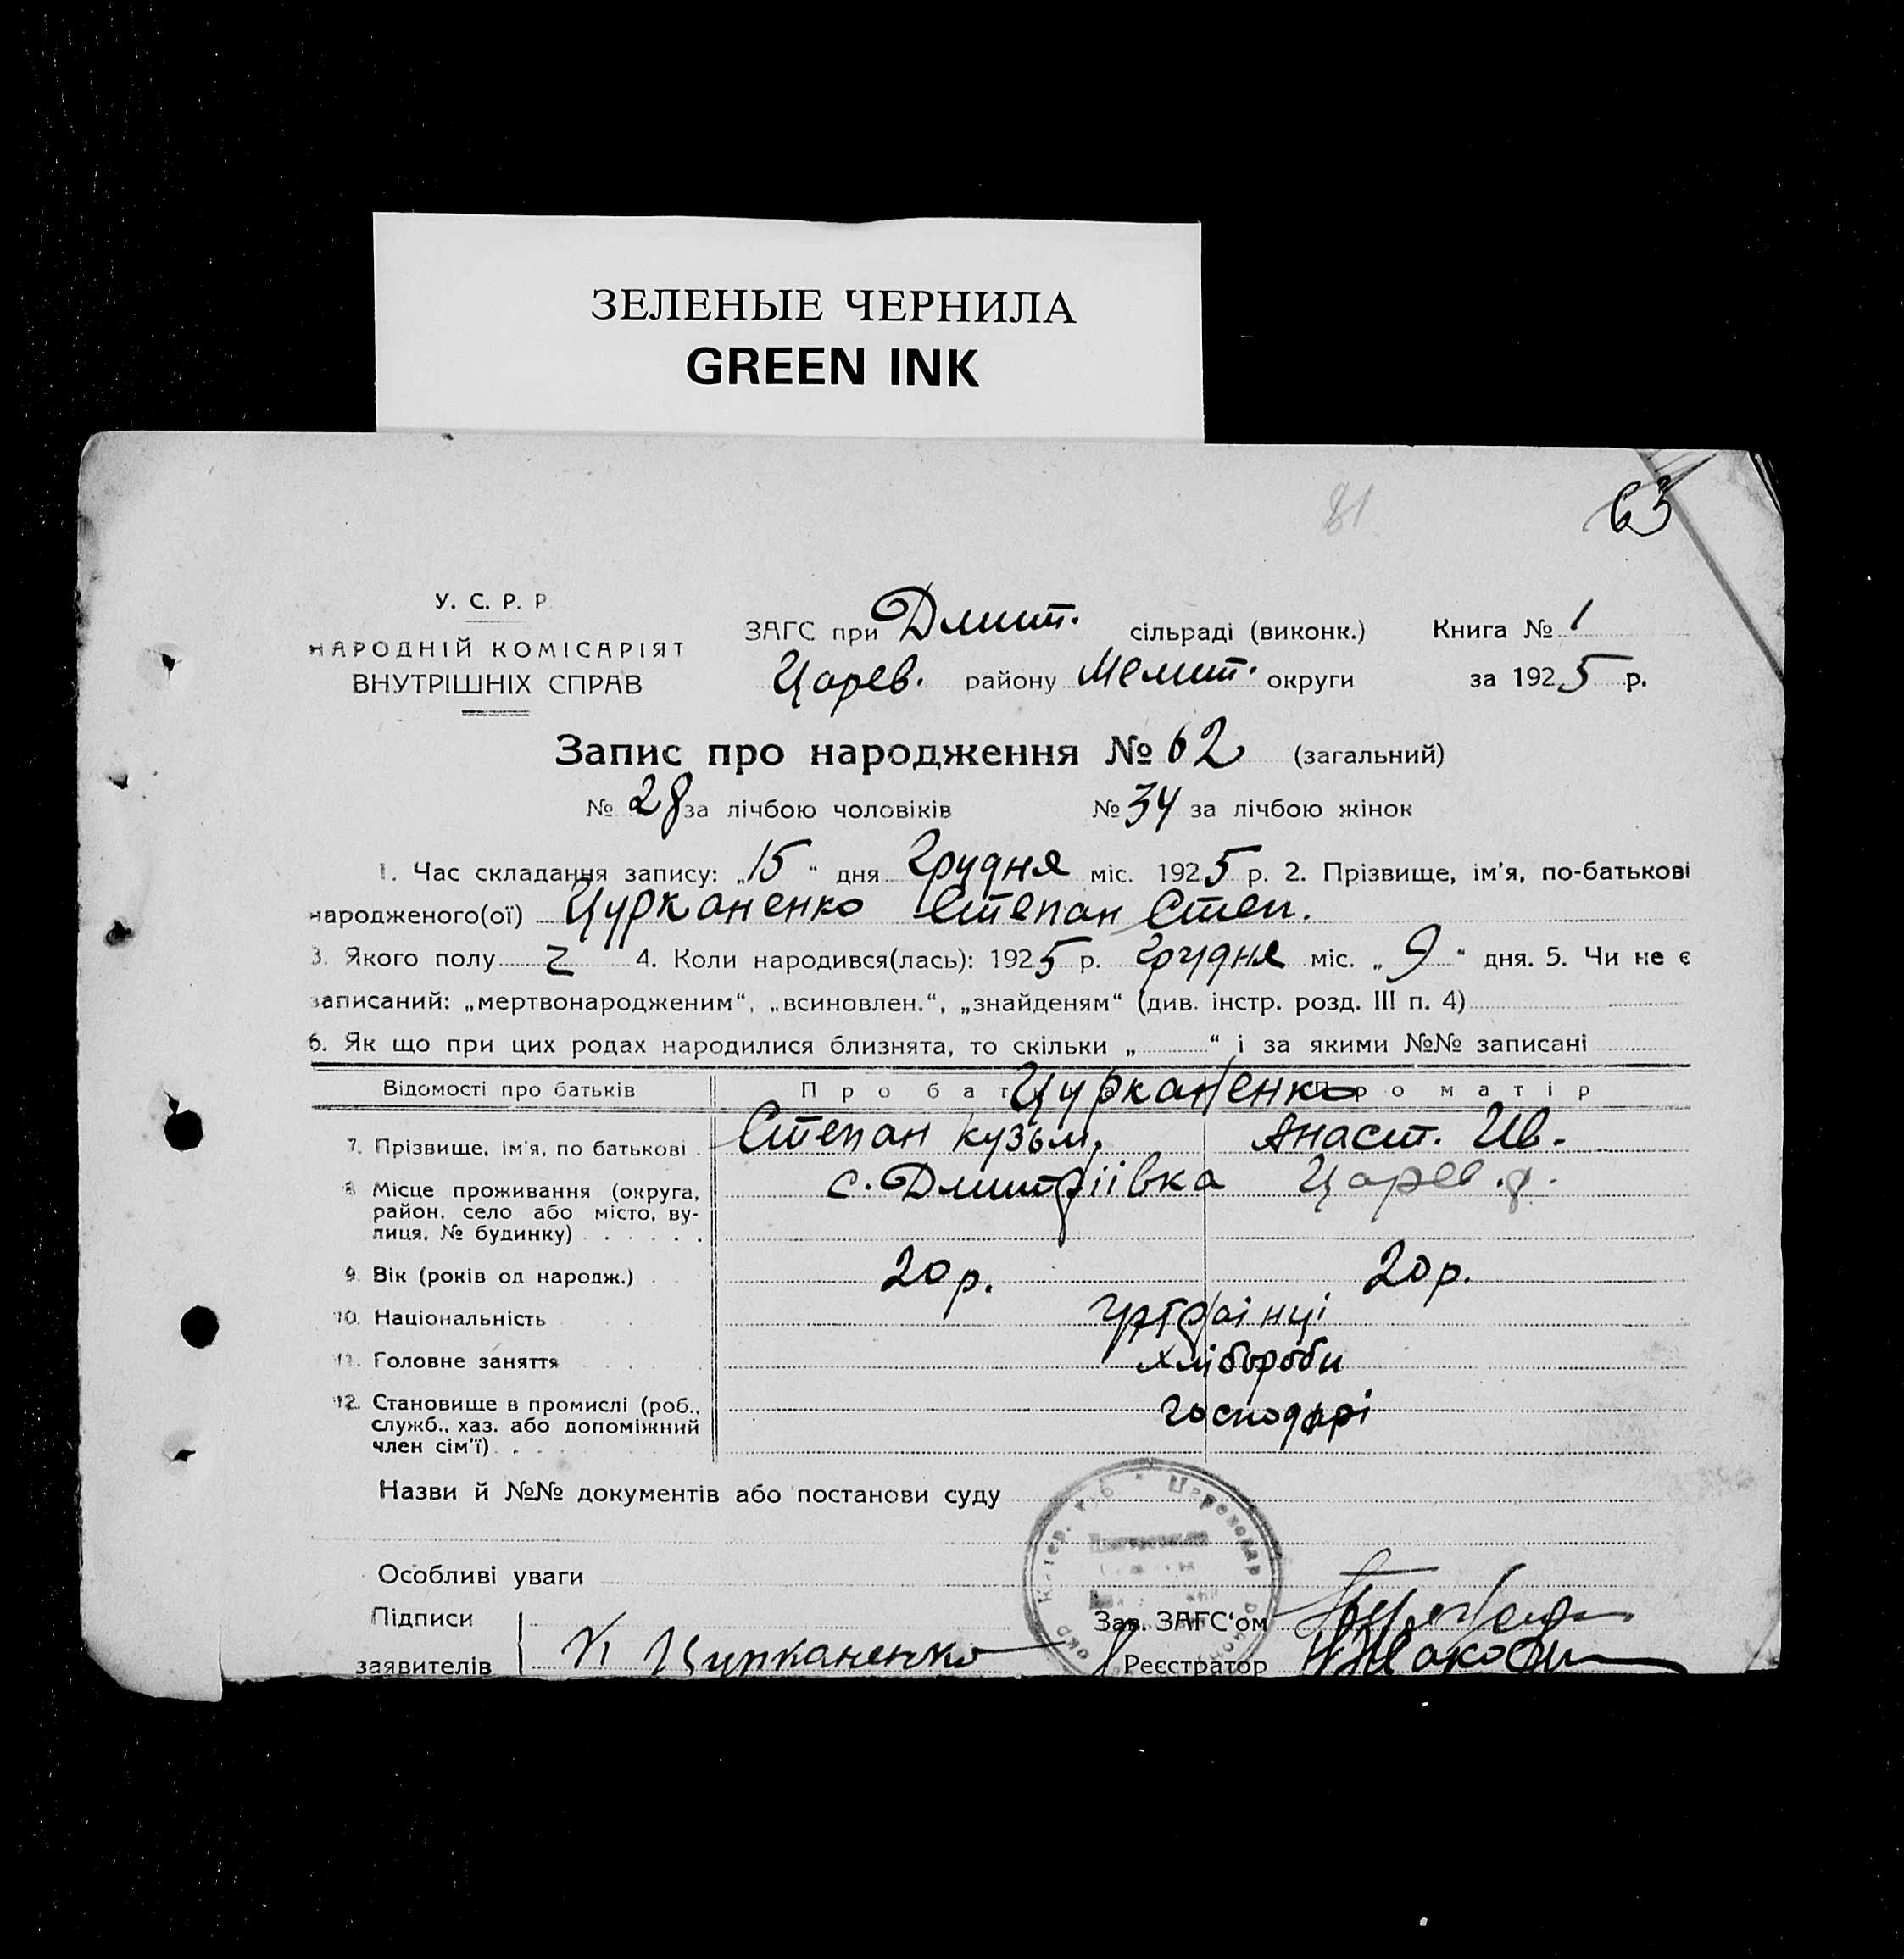 ЗЕЛЕНЫЕ ЧЕРНИЛА
GREEN INK
81
63
У. С. Р. Р.
НАРОДНІЙ КОМІСАРІЯТ
ВНУТРІШНІХ СПРАВ
ЗАГС при Дмит. сільраді (виконк.) Книга № 1
Царев. району Мелит. округи за 1925 р.
Запис про народження № 62 (загальний)
№ 28 за лічбою чоловіків № 34 за лічбою жінок
1. Час складання запису: „15“ дня Грудня міс. 1925 р. 2. Прізвище, ім'я, по-батькові
народженого(ої) Цурканенко Степан Степ.
3. Якого полу 4. Коли народився(лась): 1925 р. Грудня міс. „9“ дня. 5. Чи не є
записаний: „мертвонародженим“, „всиновлен.“, „знайденям“ (див. інстр. розд. III п. 4)
6. Як що при цих родах народилися близнята, то скільки „ “ і за якими №№ записані
Відомості про батьків Про бат Цурканенко Про матір
7. Прізвище, ім'я, по батькові Степан Кузьм. Анаст. Ив.
8. Місце проживання (округа, с. Дмитріівка Царев. р.
район, село або місто, ву-
лиця, № будинку)
9. Вік (років од народж.) 20 р. 20 р.
10. Національність Українці
11. Головне заняття хлібороби
12. Становище в промислі (роб., господарі
служб., хаз. або допоміжний
член сім'ї)
Назви й №№ документів або постанови суду
Особливі уваги
Підписи Зав. ЗАГС'ом
заявителів К Цурканенко Реєстратор